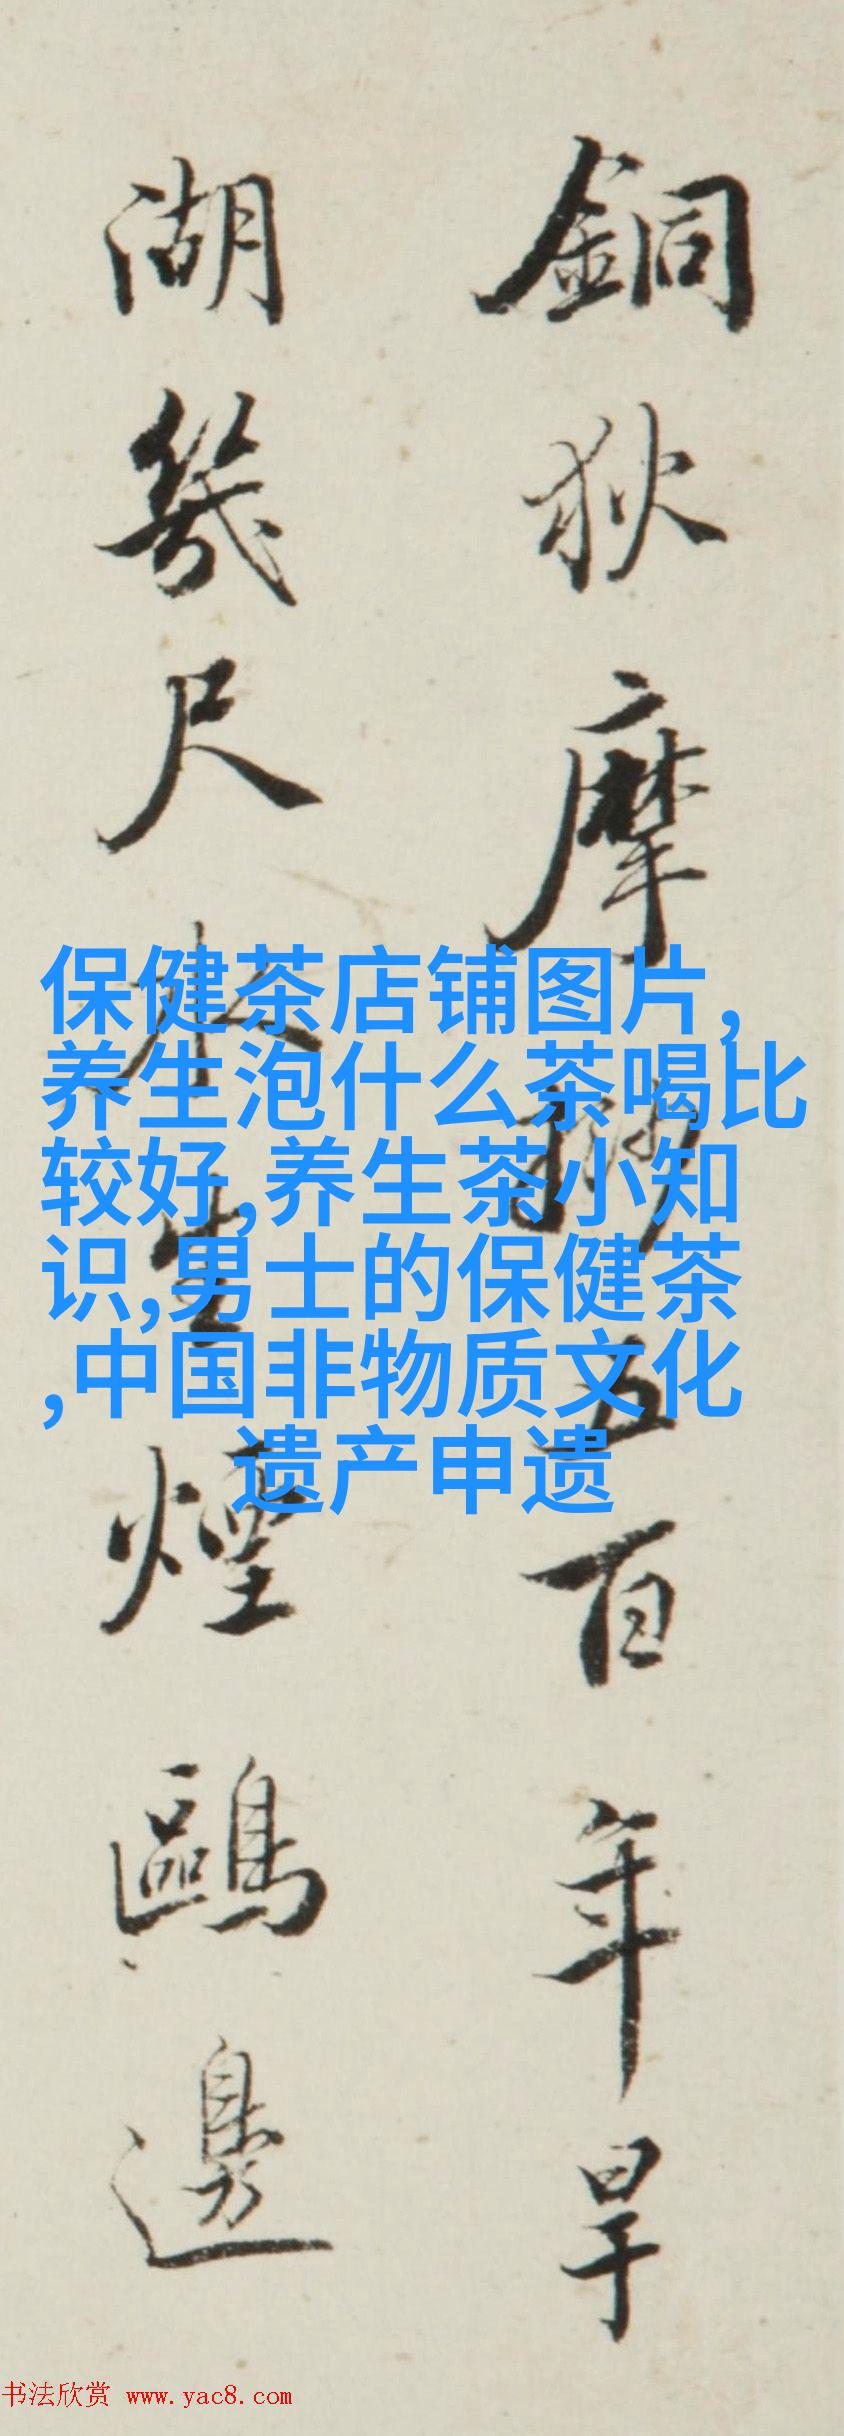 銅狄摩挲五百年旱
湖幾尺水生煙鷗邊
保健茶店铺图片,
养生泡什么茶喝比
较好,养生茶小知
识,男士的保健茶
,中国非物质文化
遗产申遗
书法欣赏 www.yac8.com